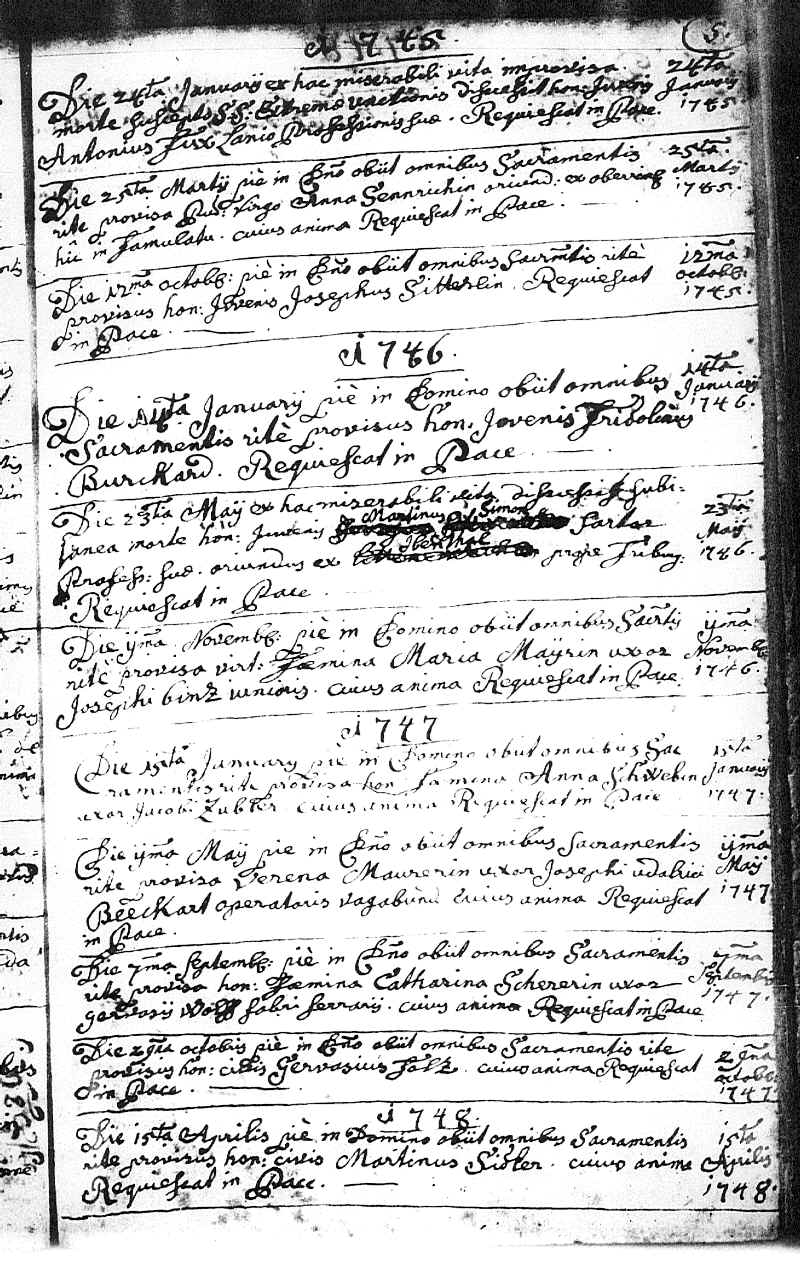 5.
1745.
Die 24ta Januarij ex hac miserabili vita improvisa 24ta
morte susceptis SS: Extremae unctionis discessit hon: Juvenis Januarij
Antonius Fux Lanio Professionis suae. Requiescat in Pace. 1745
Die 25ta Martij piè in Dño obiit omnibus Sacramentis 25ta
rite provisa Pud: Virgo Anna Sennrichin oriund: ex Martij
hic in famulatu. cuius anima Requiescat in Pace. 1745.
Die 12ma octobr: piè in Dño obiit omnibus Sacramtis ritè 12ma
provisus hon: Juvenis Josephus Sitterlin. Requiescat octobr:
in Pace. 1745.
1746.
Die 14ta Januarij piè in Domino obiit omnibus 14ta
Sacramentis ritè provisus hon. Jovenis Fridolinus Januarij
Burckard. Requiescat in Pace 1746.
Die 23tia Maij ex hac miserabili vita discessit subi-
tanea morte hon: Juvenis Martinus Simon Sartor 23tia
Profess: suae. oriundus ex Ibenthal prope Friburg: Maij
Requiescat in Pace. 1746.
Die ijma Novembr: piè in Domino obiit omnibus Sacrtis ijma
ritè provisa virt: Faemina Maria Mayrin uxor Novembr:
Josephi binz iunioris. cuius anima Requiescat in Pace. 1746.
1747
Die 15ta January piè in Domino obiit omnibus Sac 15ta
ramentis rite provisa hon. Faemina Anna Schwebin January
uxor Jacobi Zubler. cuius anima Requiescat in Pace 1747.
Die ijma Maij pie in Dño obiit omnibus sacramentis ijma
rite provisa Verena Maurerin uxor Josephi udalrici Maij
Beeckart operatoris vagabundi cuius anima Requiescat 1747
in Pace.
Die 7ma septembr: piè in Dño obiit omnibus Sacramentis 7ma
rite provisa hon: Faemina Catharina Schererin uxor Septembris
gervasij Wolff fabri ferrarij. cuius anima Requiescat in Pace 1747.
Die 29na octobris piè in Dño obiit omnibus Sacramentis rite 29na
provisus hon: civis Gervasius Folz. cuius anima Requiescat octobr:
in Pace. 1747
1748.
Die 15ta Aprilis piè in Domino obiit omnibus Sacramentis 15ta
rite provisus hon: civis Martinus Sidler. cuius anima Aprilis
Requiescat in Pace. 1748.